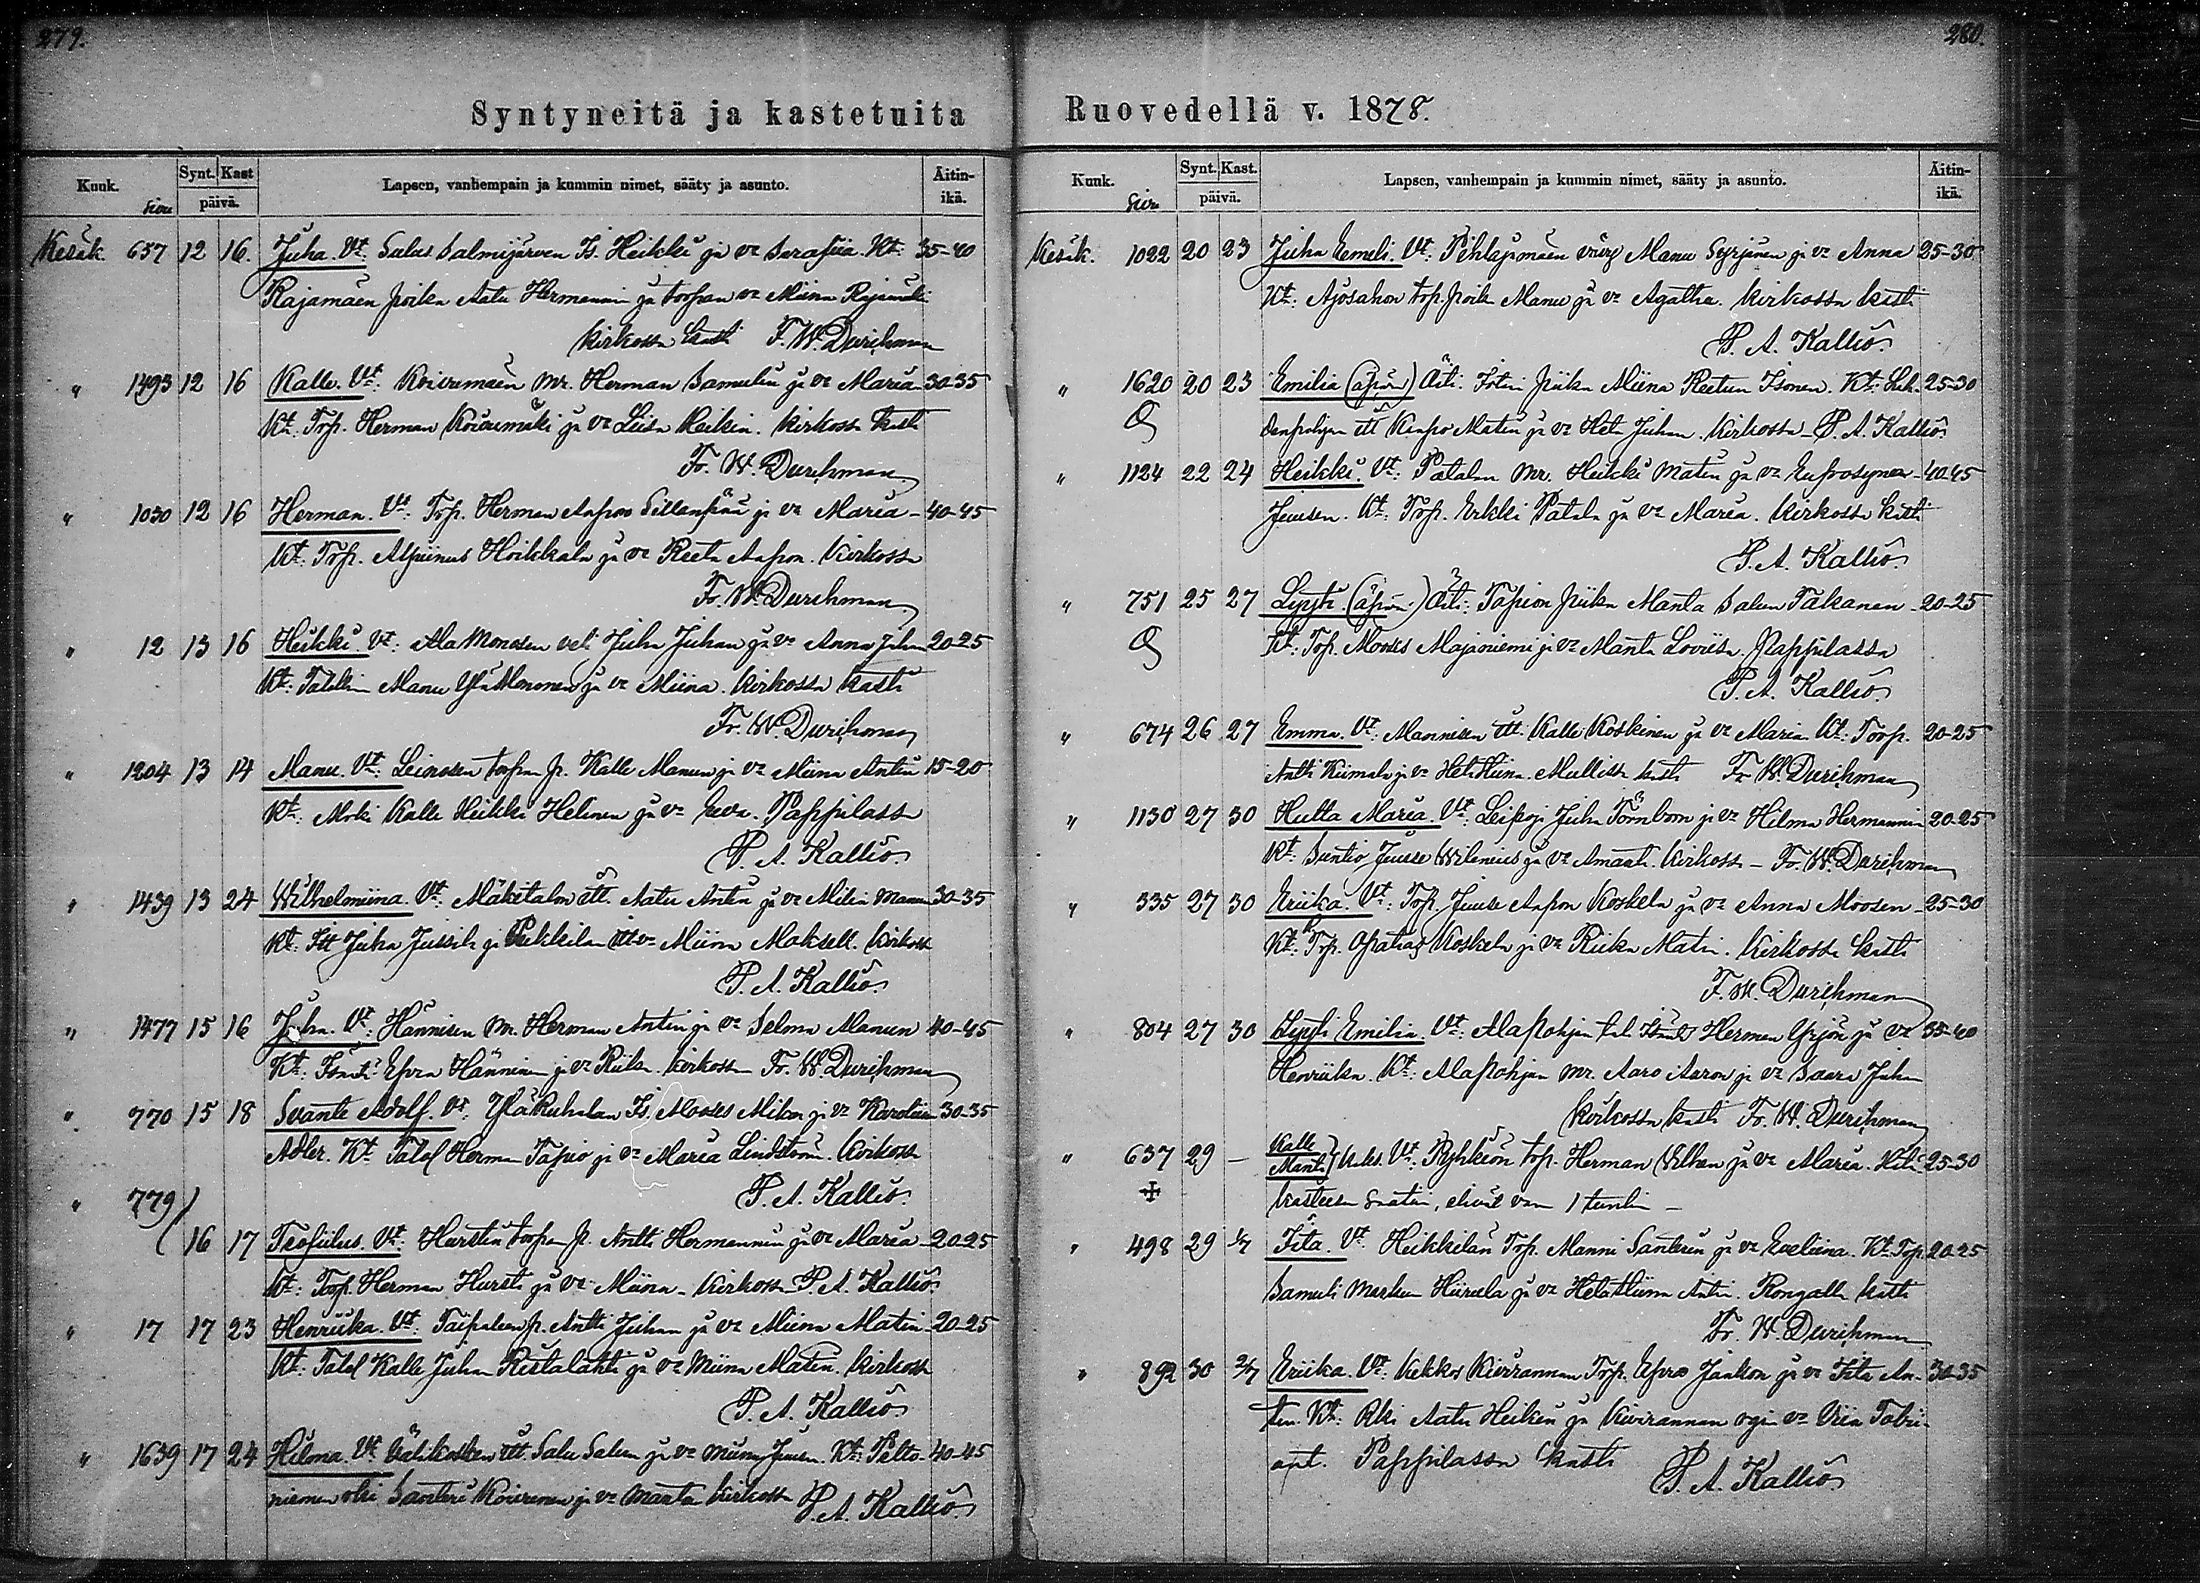 279.
Syntyneitä ja kastetuita
Kuuk. Sivu Synt. Kast päivä. Lapsen, vanhempain ja kummin nimet, sääty ja asunto. Äitin-ikä.
Kesäk. 657 12 16. Juha. Vt. Salus. Salmijärven Is. Heikki ja vo Serafiia. Kt: 35-40
Rajamäen poika Aatu Hermanni ja torpan vo Miina Rajamäki
Kirkossa kasti F. W. Durchman
" 1493 12 16 Kalle. Vt. Koivumäen Mr. Herman Samulin ja vo Maria 30-35
Kt: Torp. Herman Koivumäki ja vo Leisa Heikin. Kirkossa kasti
Fr. W. Durchman
" 1030 12 16 Herman. Vt: Torp. Herman Aapron Sillanpää ja vo Maria - 40-45
Kt: Torp. Alpiinus Hoikkala ja vo Reeta Aapron. Kirkossa
Fr. W. Durchman
" 12 13 16 Heikki. Vt: Ala Monosen veli Juha Juhan ja vo Anna Juhan 20-25
Kt: Talollin. Manu Ylä Mononen ja vo Miina. Kirkossa kasti
Fr. W. Durchman
" 1204 13 14 Manu. Vt: Leinosen torpan p. Kalle Manun ja vo Miina Antin 15-20
Kt: Mrki Kalle Heikki Helinen ja vo Eeva. Pappilassa
P. A. Kallio
" 1439 13 24 Wilhelmiina. Vt: Mäkitalon itt. Aatu Antin ja vo Milia Manun 30-35
Kt: Itt Juha Jussila ja Pukkilan itt vo Miina Maksell. Kirkossa
P. A. Kallio.
" 1477 15 16 Juha. Vt: Hännisen Mr. Herman Antin ja vo Selma Manun 40-45
Kt: Isäntä Efra Hänninen ja vo Riika. Kirkossa Fr. W. Durchman
" 770 15 18 Svante Adolf. Vt. Yläkuhalan Is. Mooses Mikon ja vo Karoliina 30-35
Adler. Kt. Talol Herman Tapio ja vo Maria Lindström. Kirkossa
P. A. Kallio.
" 779
16 17 Teofiilus. Vt: Hurstin torpan p. Antti Hermannin ja vo Maria 20-25
Kt: Torp. Herman Hursti ja vo Miina - Kirkossa P. A. Kallio.
" 17 17 23 Henriika. Vt: Taipaleen p. Antti Juhan ja vo Miina Matin 20-25
Kt: Talol Kalle Juhan Ristalahti ja vo Miina Matin. Kirkossa
P. A. Kallio
" 1639 17 24 Hilma. Vt. Vähikosken itt. Salu Salun ja vo Miina Juusen. Kt: Pelto- 40-45
niemen Santeri Koivunen ja vo Manta Kirkossa P. A. Kallio
280.
Ruovedellä v. 1878.
Kuuk. Sivu Synt. Kast. päivä. Lapsen, vanhempain ja kummin nimet, sääty ja asunto. Äitin-ikä.
Kesäk. 1022 20 23 Juha Eemeli. Vt: Pihlajamäen vävy Manu Syrjänen ja vo Anna 25-30
Kt: Ajosahon torp. poik. Manu ja vo Agatha. Kirkossa kasti
P. A. Kallio.
" 1620 20 23 Emilia (äpärä) Äiti. Piika Miina Reetun Isonen. Kt: 25-30
itt Kaapro Matin ja vo Heta Juhan. Kirkossa - P. A. Kallio
" 1124 22 24 Heikki. Vt: Patalan Mr. Heikki Matin ja vo Eufrosyna 40-45
Juusen. Kt: Torp. Erkki Patala ja vo Maria. Kirkossa kasti
P. A. Kallio
" 751 25 27 Lyyti. (äpärä.) Äiti: Tapion Piika Manta Salun Takanen 20-25
Kt: Torp. Mooses Majaniemi ja vo Manta Loviisa. Pappilassa
P. A. Kallio
" 674 26 27 Emma. Vt: Mannisen itt. Kalle Koskinen ja vo Maria. Kt: Torp. 20-25
Antti Keimala ja vo Heta Stiina. Mullissa kasti Fr. W. Durchman
" 1130 27 30 Hulta Maria. Vt: Juha Törnbom ja vo Hilma Hermannin 20-25
Kt: Suntio Juuse Wilenius ja vo Amanta. Kirkossa - Fr. W. Durchman
" 335 27 30 Eriika. Vt: Torp. Juuse Aapron Koskela ja vo Anna Moosen 25-30
Kt: Torp. Koskela ja vo Riika Matin. Kirkossa kasti
F. W. Durchman
" 804 27 30 Lyyti Emilia. Vt: Ala Pohjan tal. Isäntä Herman Yrjön ja vo 35-40
Henriika. Kt: Ala Pohjan Mr. Aaro Aaron ja vo Saara Juhan
Kirkossa kasti Fr. W. Durchman
" 637 29 - Kalle Manti} Kaks. Vt: Ryhkiön torp. Herman ja vo Maria. 25-30
kasteen saatiin, elivät vaan 1 tunnin -
" 498 29 1/7 Fita. Vt. Heikkilän Torp. Manni Santerin ja vo Eveliina. Kt: Torp. 20-25
Samuli Markun Hiirula ja vo Heta Stiina Antin. Rongalla kasti
Fr. W. Durchman
" 892 30 2/7 Eriika. Vt: Kekkos Kivirannan Torp. Efra Jankon ja vo Fita An- 30-35
tin. Kt: Rki Aatu Heikin ja Kivirannan vo Viia
Pappilassa kasti P. A. Kallio